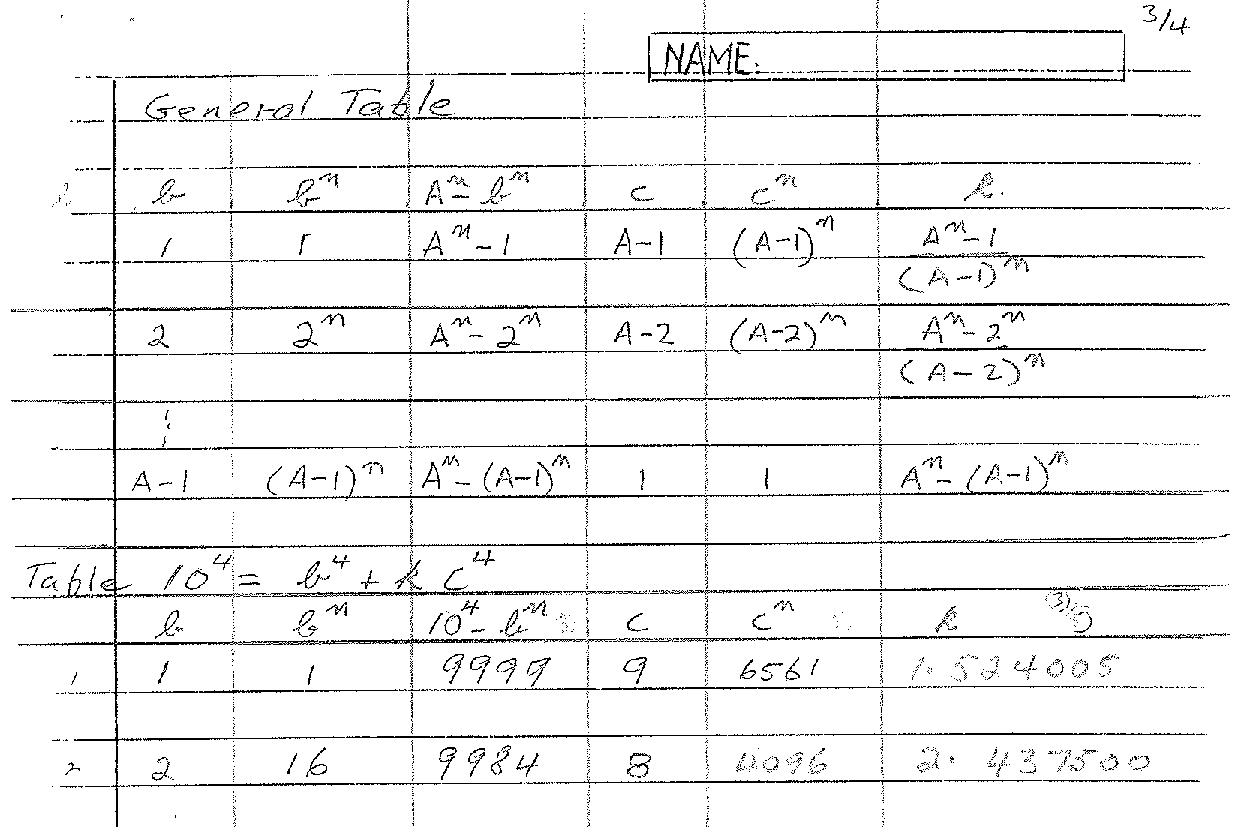 3/4
NAME.
General Table
b bⁿ Aⁿ - bⁿ c cⁿ k.
1 1 Aⁿ - 1 A-1 (A-1)ⁿ Aⁿ - 1
(A-1)ⁿ
2 2ⁿ Aⁿ - 2ⁿ A-2 (A-2)ⁿ Aⁿ - 2ⁿ
(A-2)ⁿ
⋮
A-1 (A-1)ⁿ Aⁿ - (A-1)ⁿ 1 1 Aⁿ - (A-1)ⁿ
Table 10⁴ = b⁴ + k c⁴
b bⁿ 10⁴ - bⁿ c cⁿ k
1 1 1 9999 9 6561 1.524005
2 2 16 9984 8 4096 2.437500